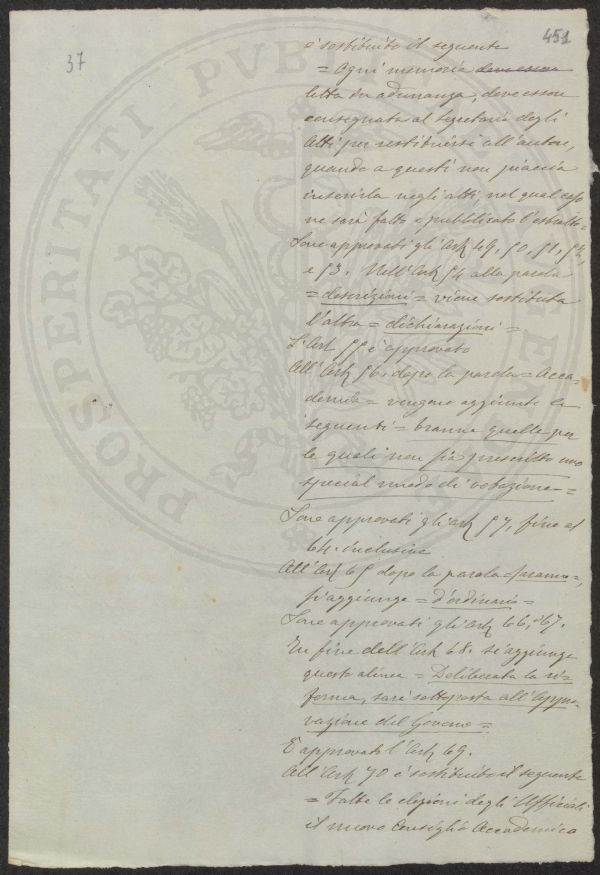 451
37
è sostituito il seguente
= Ogni memoria deve essere
letta in adunanza, deve essere
consegnata al Segretario degli
Atti per restituirsi all'autore,
quando a questi non piaccia
inserirla negli atti, nel qual caso
ne sarà fatto e pubblicato l'estratto =
Sono approvati gli Art. 49, 50, 51, 52,
e 53. Nell'Art. 54 alla parola
= descrizioni = viene sostituita
l'altra = dichiarazioni =
L'Art. 55 è approvato
All'Art. 56. dopo la parola = Acca-
demia = vengono aggiunte le
seguenti = tranne quelle per
le quali non sia prescritto uno
special modo di votazione =
Sono approvati gli art. 57, fino al
64. inclusive
All'Art. 65 dopo la parola = saranno =,
si aggiunge = d'ordinario =
Sono approvati gli art. 66, 67.
In fine dell'Art. 68. si aggiunge
questo alinea = Deliberata la ri-
forma, sarà sottoposta all'Appro-
vazione del Governo =
È approvato l'Art. 69.
All'Art. 70 è sostituito il seguente
= Fatte le elezioni degli Ufficiali
il nuovo Consiglio Accademico
PROSPERITATI PUBL